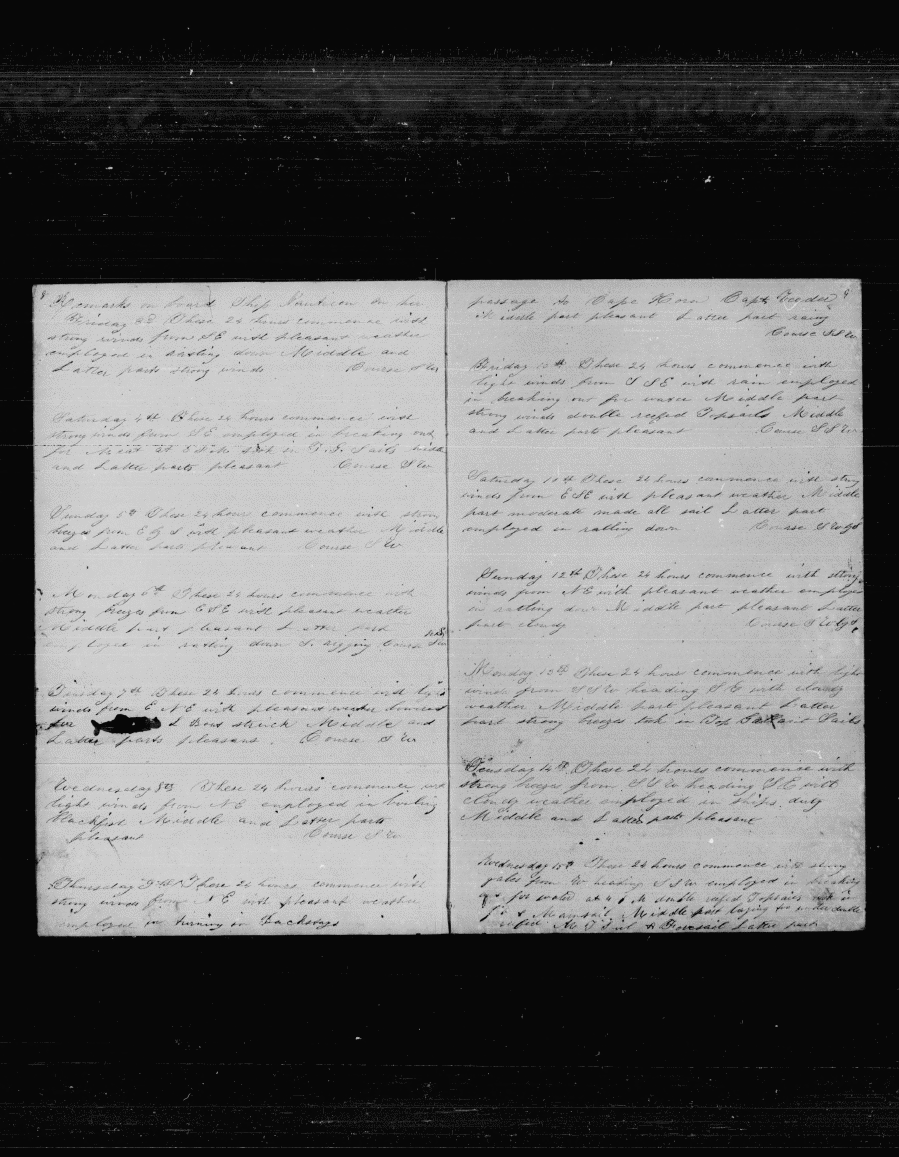 8 Remarks on board Ship Nauticon on her
Friday 3d These 24 hours commence with
strong winds from SE with pleasant weather
employed in rattling down Middle and
Latter parts strong winds Course SW
Saturday 4th These 24 hours commence with
strong winds from SE employed in breaking out
for Meat at took in T. G. Sails Middle
and Latter parts pleasant Course SW
Sunday 5th These 24 hours commence with strong
breezes from E by S with pleasant weather Middle
and Latter parts pleasant Course SW
Monday 6th These 24 hours commence with
strong breezes from ESE with pleasant weather
Middle part pleasant Latter part
employed in rattling down Rigging Course
Tuesday 7th These 24 hours commence with light
winds from E NE with pleasant weather lowered
for L Boat struck Middle and
Latter parts pleasant. Course SW
Wednesday 8th These 24 hours commence with
light winds from NE employed in boiling
Blackfish Middle and Latter parts
pleasant Course SW
Thursday 9th These 24 hours commence with
strong winds from NE with pleasant weather
employed in turning in Backstays
passage to Cape Horn Capt 9
Middle part pleasant Latter part rainy
Course SSW
Friday 10th These 24 hours commence with
light winds from SSE with rain employed
in breaking out for water Middle part
strong winds double reefed Topsails Middle
and Latter parts pleasant Course SSW
Saturday 11th These 24 hours commence with strong
winds from ESE with pleasant weather Middle
part moderate made all sail Latter part
employed in rattling down Course SW by S
Sunday 12th These 24 hours commence with strong
winds from NE with pleasant weather employed
in rattling down Middle part pleasant Latter
part cloudy Course SW by S
Monday 13th These 24 hour commence with light
winds from SSW heading SE with cloudy
weather Middle part pleasant Latter
part strong breezes took in Top Gallant Sails
Tuesday 14th These 24 hours commence with
strong breezes from SSW heading SE with
cloudy weather employed in ships duty
Middle and Latter parts pleasant
Wednesday 15th These 24 hours commence with strong
gales from W heading SSW employed in breaking
out for water at 4 PM double reefed Topsails took in
jib & Mainsail Middle part laying to under double
reefed M T Sail & Foresail Latter part